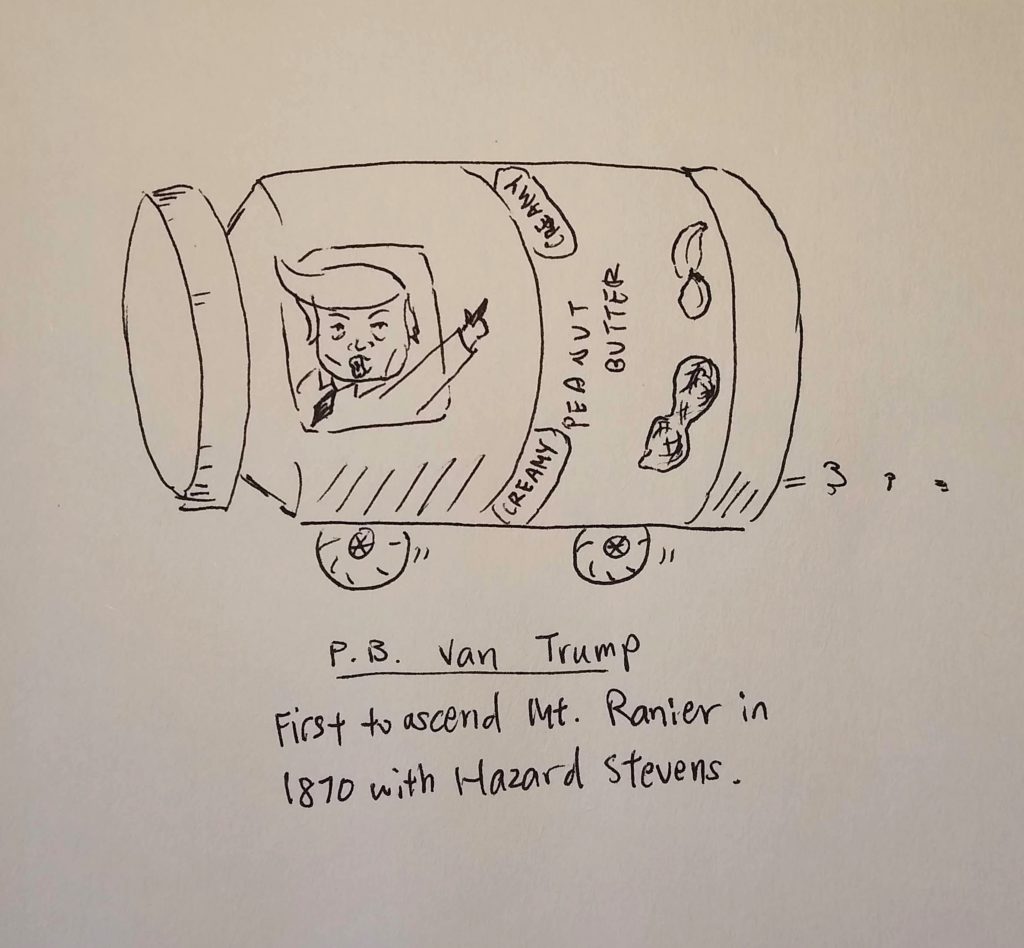 CREAMY
PEANUT
BUTTER
CREAMY
P.B. Van Trump
First to ascend Mt. Ranier in
1870 with Hazard Stevens.